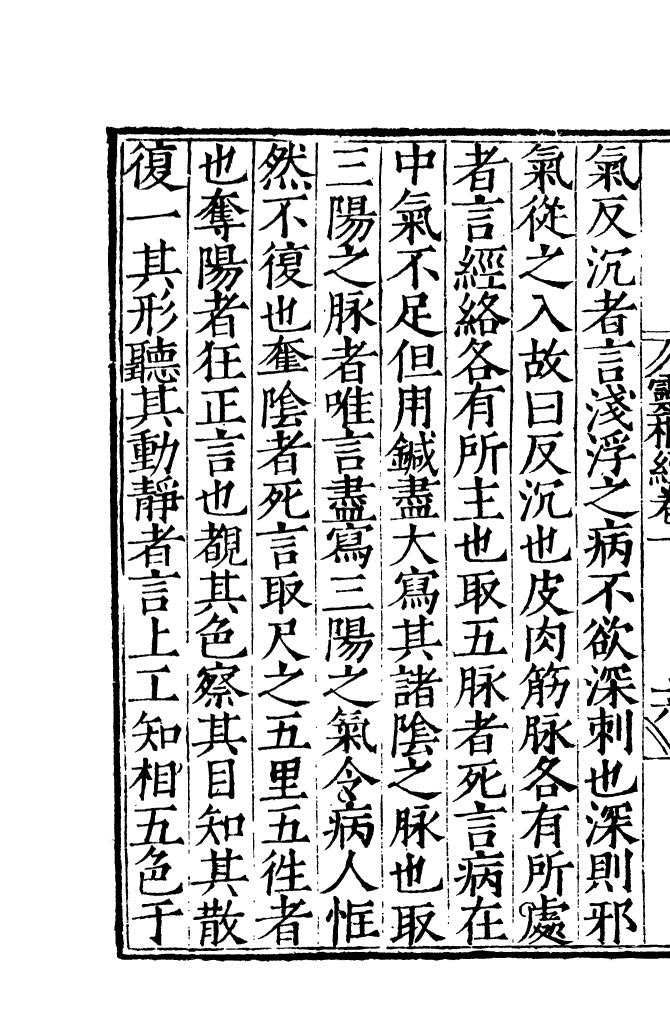 靈樞經卷一
氣反沉者言淺浮之病不欲深刺也深則邪
氣從之入故曰反沉也皮肉筋脉各有所處
者言經絡各有所主也取五脉者死言病在
中氣不足但用鍼盡大寫其諸陰之脉也取
三陽之脉者唯言盡寫三陽之氣令病人恇
然不復也奪陰者死言取尺之五里五徃者
也奪陽者狂正言也覩其色察其目知其散
復一其形聽其動靜者言上工知相五色于